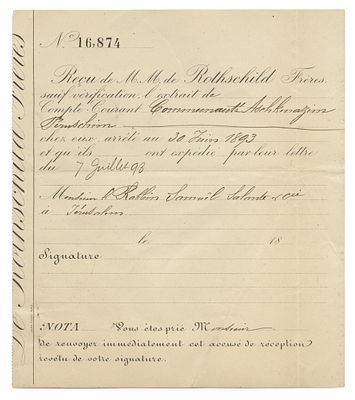 N.° 16,874
Reçu de M. M. de Rothschild Frères,
sauf vérification, l'extrait de
Compte-Courant Communauté Aschkenazim
Jérusalem
chez eux arrêté au 30 Juin 1893
et qu'ils ont expédié par leur lettre
du 7 Juillet 93
Monsieur le Rabbin Samuël Salant & Cie
à Jérusalem
le 18
Signature
NOTA Vous êtes prié Monsieur
de renvoyer immédiatement cet accusé de réception
revêtu de votre signature.
de Rothschild Frères